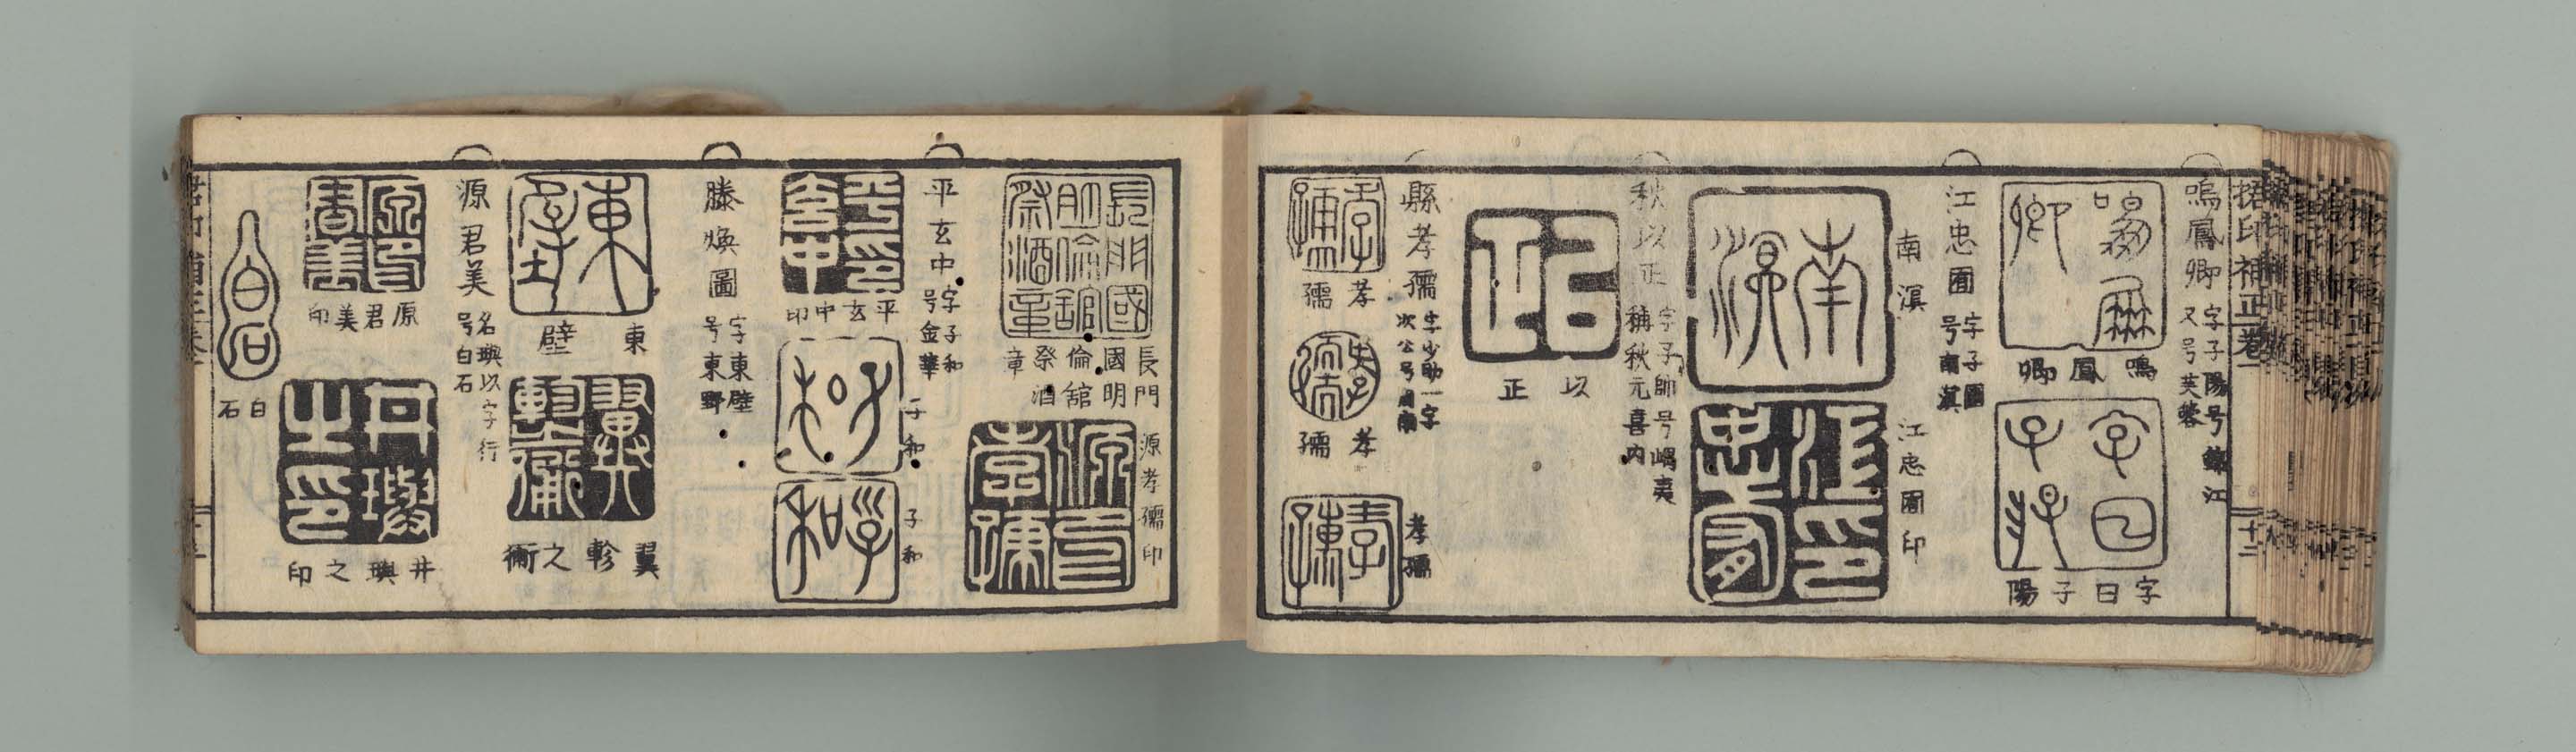 捃印補正卷一
十二
鳴鳳卿
字子陽号錦江
又号芙蓉
鳴鳳卿
字曰子陽
江忠囿
字子園
号南溟
南溟
江忠囿印
秋以正
字子帥号嵎夷
稱秋元喜内
以正
縣孝孺
字少助一字
次公号周南
孝孺
孝孺
孝孺
長門
國明
倫舘
祭酒
章
源孝孺印
平玄中
字子和
号金華
平玄中印
子和
子和
滕煥圖
字東壁
号東野
東壁
翼軫之衢
源君美
名璵以字行
号白石
原君美印
井璵之印
白石